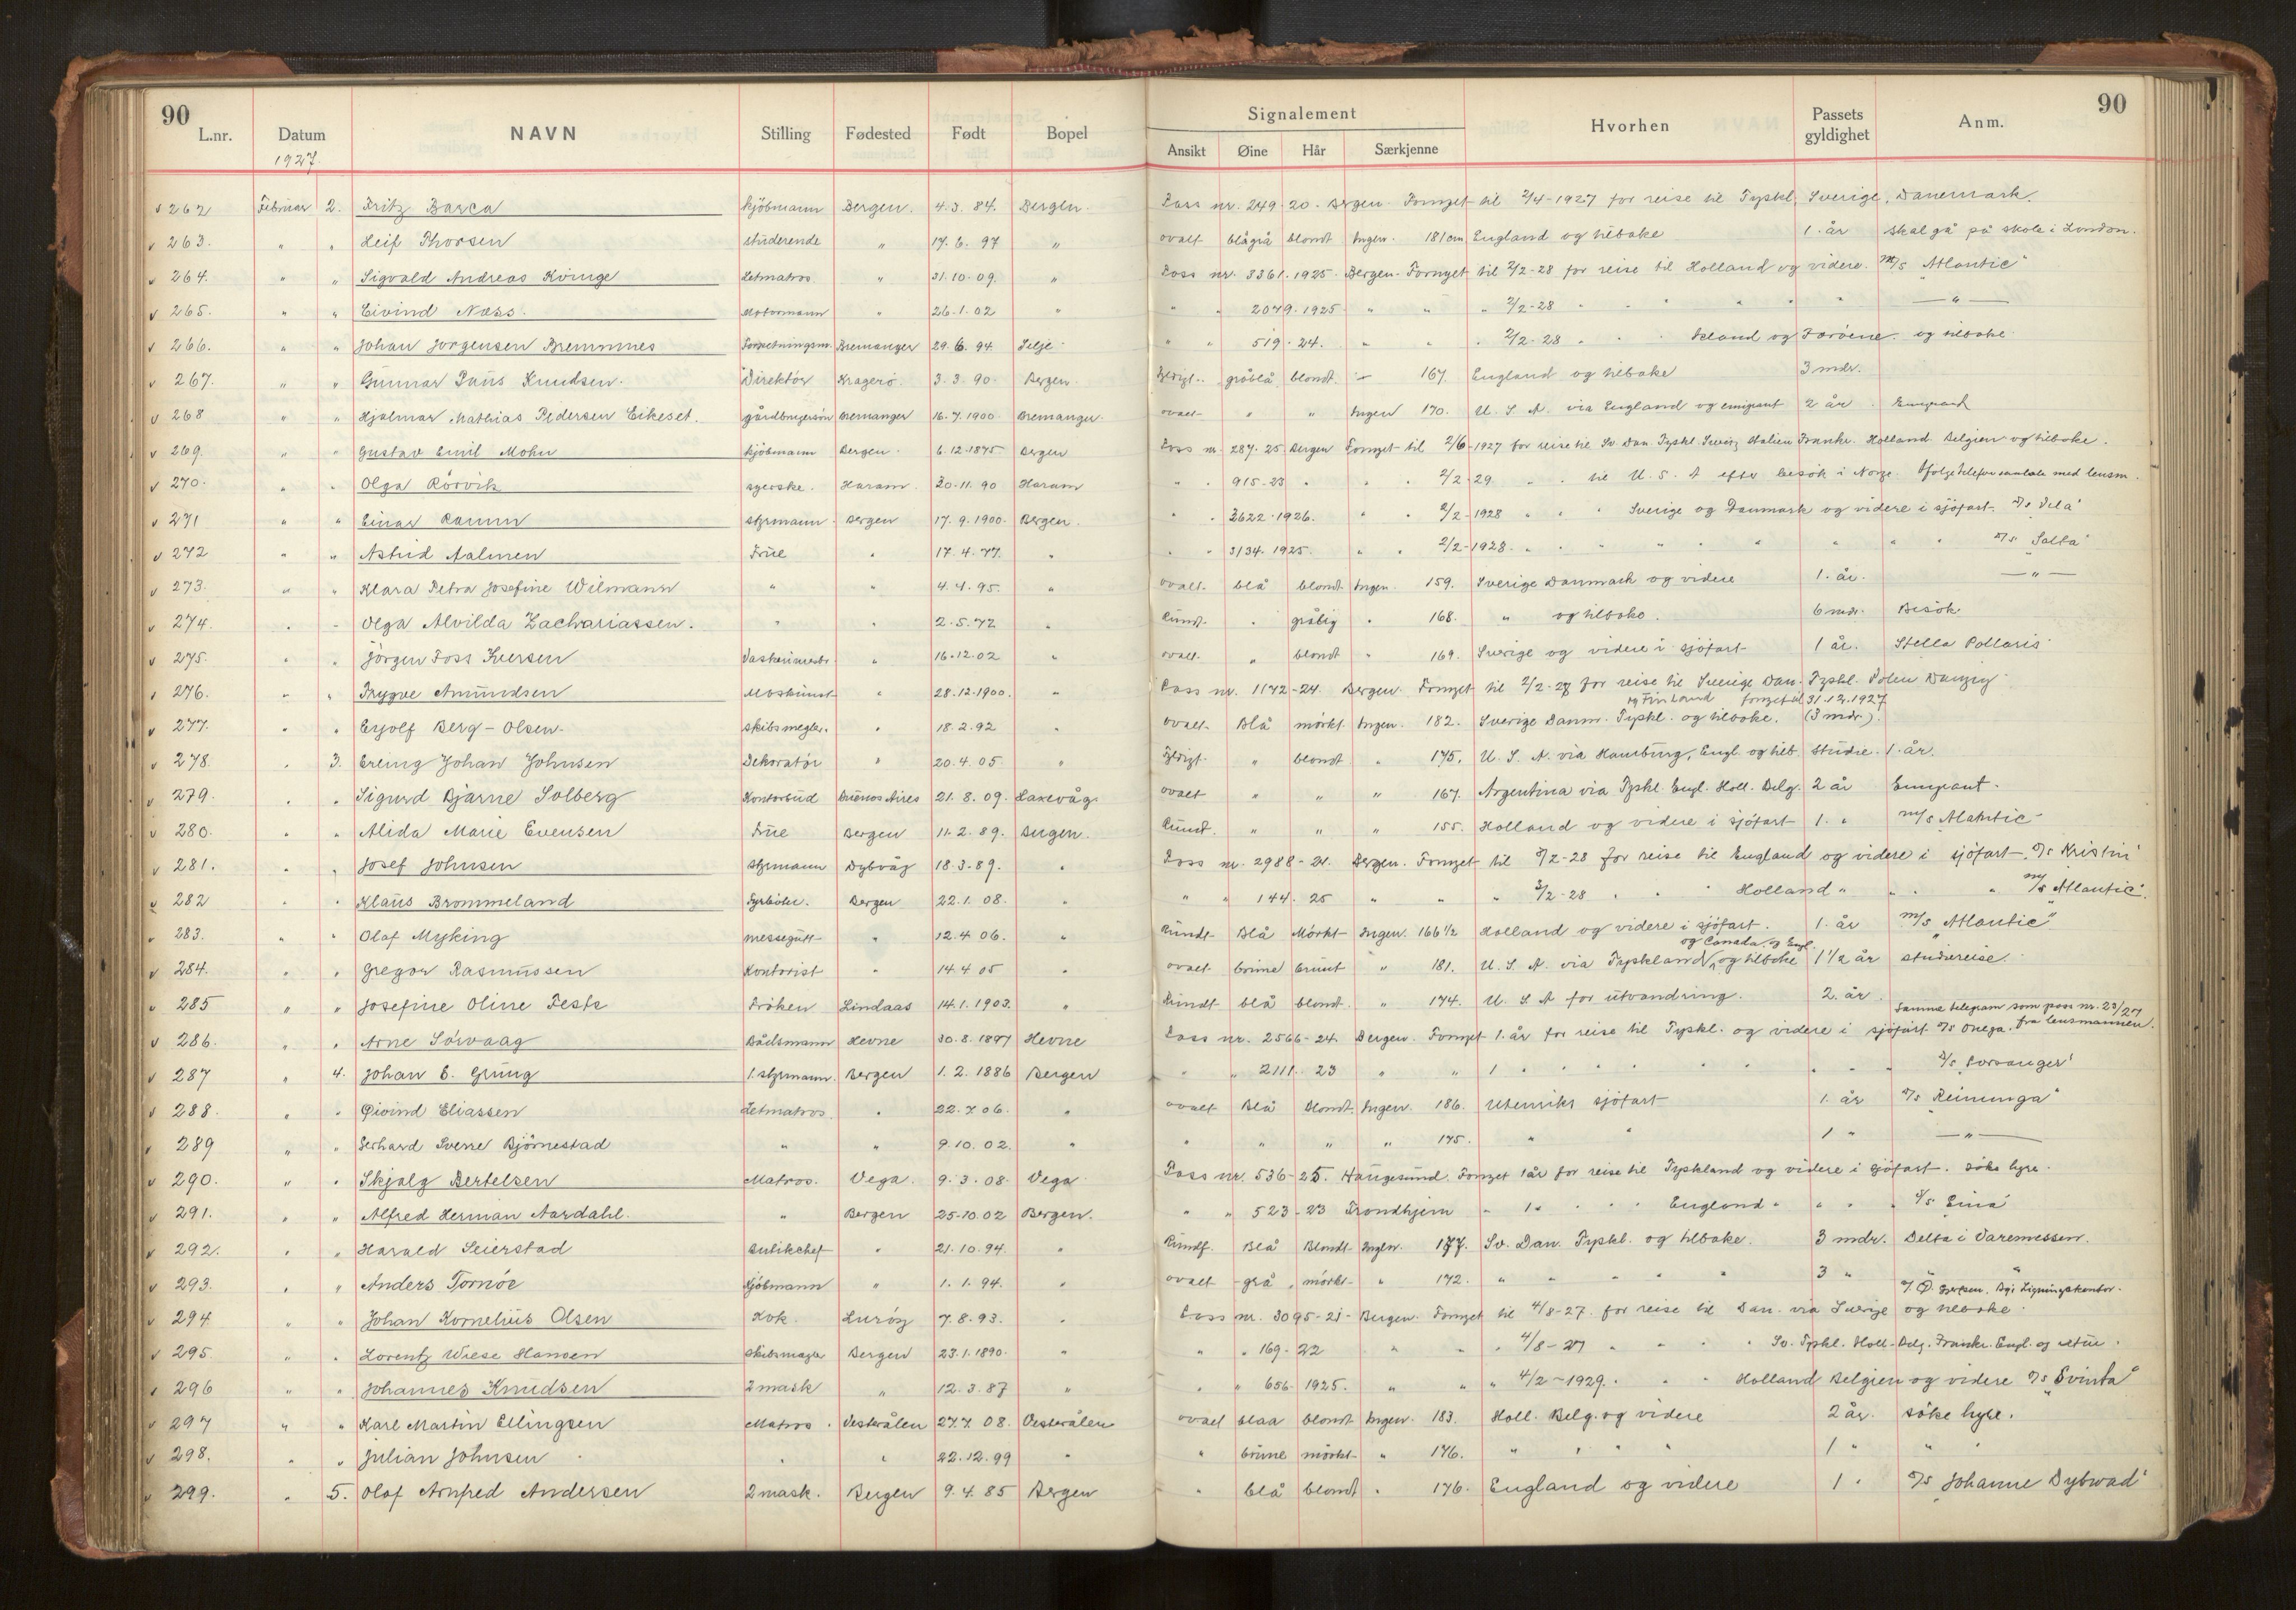 90
L.nr. Datum NAVN Stilling Fødested Født Bopel Signalement Hvorhen Passets gyldighet Anm. 90
Ansikt Øine Hår Særkjenne
1927.
262 Februar 2. Fritz Barca kjöbmann Bergen. 4.3.84. Bergen. Pass nr. 249.20. Bergen Fornyet til 2/4-1927 for reise til Tyskl, Sverige, Danemark.
263. " " Leif Thorsen studerende " 17.6.97 " ovalt blågrå blondt Ingen. 181 cm England og tilbake 1. år skal gå på skole i London.
264. " " Sigvald Andreas Kvinge Letmatros " 31.10.09. " Pass nr. 3361.1925. Bergen. Fornyet til 2/2-28 for reise til Holland og videre. M/s "Atlantic"
265. " " Eivind Næss. Motormann " 26.1.02 " " " 2049.1925 " " " 2/2-28 " " " " " " — " —
266. " " Johan Jorgensen Bremmnes Bremanger 29.6.94. Selje " " 519.24. " " " 2/2-28 " " Island og Færöene. og tilbake
267. " " Gunnar Paus Knudsen. Direktör Kragerö 3.3.90. Bergen. gråblå blondt. — 167. England og tilbake 3 mdr.
268 " " Hjalmar Mathias Pedersen Eikeset. gårdbrugersön Bremanger 16.7.1900 Bremanger. ovalt " " Ingen 170. U.S.A. via England og emigrant 2 år. Emigrant
269. " " Gustav Emil Mohn kjöbmann Bergen. 6.12.1875 Bergen Pass nr. 287.25. Bergen Fornyet til 2/6-1927 for reise til Sv. Dan. Tyskl. Sveits Italien Frankr. Holland Belgien og tilbake.
270. " " Olga Rörvik syerske. Haram. 20.11.90 Haram " " 915-23 " " " 2/2-29 " " til U.S.A efter besök i Norge. Ifölge telefon samtale med lensm.
271 " " Einar Ramm styrmann. Bergen 17.9.1900. Bergen. " " 3622.1926. " " 2/2-1928 " " " Sverige og Danmark og videre i sjöfart. D/s "Vela"
272 " " Astrid Aalmen Frue " 17.4.77. " " " 3134.1925. " " 2/2-1928. " " " " " " " " " D/s "Salta"
273. " " Klara Petra Josefine Wilmann " " 4.4.95. " ovalt. blå blondt. Ingen. 159. Sverige Danmark og videre 1. år. — " —
274. " " Olga Alvilda Zachariassen. " " 2.5.72 " Rundt. " gråbig " 168. " og tilbake. 6 mdr. Besök
275. " " Jörgen Foss Iversen " 16.12.02 " ovalt. " blondt " 169. Sverige og videre i sjöfart 1 år. Stella Pollaris
276. " " Trygve Amundsen Maskinist " 28.12.1900. " Pass nr. 1172-24. Bergen. Fornyet til 2/2-28 for reise til Sverige Dan. Tyskl. Polen Danzig
og Finland fornyet til 31.12.1927
277. " " Eyolf Berg-Olsen. skibsmegler. " 18.2.92 " ovalt. Blå mörkt Ingen. 182. Sverige Danm. Tyskl. og tilbake. (3 mdr.).
278. " 3. Erling Johan Johnsen Dekoratör " 20.4.05. " " blondt " 175. U.S.A. via Hamburg, Engl. og tilb. studie. 1. år.
279. " " Sigurd Bjarne Solberg Kontorbud Buenos Aires 21.8.09. Laxevåg. ovalt " " " 167. Argentina via Tyskl. Engl. Holl. Belg. 2 år Emigrant.
280. " " Alida Marie Evensen Frue Bergen 11.2.89. Bergen. Rundt. " " " 155. Holland og videre i sjöfart 1. " M/s Atlantic
281. " " Josef Johnsen styrmann Dybvåg 18.3.89. " Pass nr. 2988-21. Bergen. Fornyet til 3/2-28 for reise til England og videre i sjöfart. D/s Kristin
282 " " Klaus Brommeland Fyrböter. Bergen 22.1.08. " " " 144. 25 " " " 3/2-28 " " " Holland " " " " M/s "Atlantic".
283. " " Olaf Myking messegutt " 12.4.06. " Rundt Blå Mörkt Ingen. 166 1/2 Holland og videre i sjöfart. 1. år M/s "Atlantic"
og Canada og Engl.
284. " " Gregor Rasmussen Kontorist " 14.4.05 " ovalt. brune brunt " 181. U.S.A. via Tyskland og tilbake 1 1/2 år studiereise.
285 " " Josefine Oline Feste Fröken Lindaas 14.1.1903. " Rundt blå blondt. " 174. U.S.A for utvandring. 2. år. Samme telegram som pass nr. 23/27 fra lensmannen.
286. " " Arne Sörvaag Båtsmann Hevne 30.8.1897 Hevne Pass nr. 2566-24. Bergen. Fornyet 1. år for reise til Tyskl. og videre i sjöfart. D/s Onega.
287 " 4. Johan E. Grung 1. styrmann. Bergen 1.2.1886 Bergen " " 2111. 23 " " 1 " " " " " " " D/s "Porsanger"
288. " " Öivind Eliassen Letmatros. " 22.7.06. " ovalt Blå Blondt. Ingen. 186. Utenriks sjöfart 1. år D/s "Reinunga"
289 " " Gerhard Sverre Björnestad " " 9.10.02. " " " " " 175. " " 1 " — " —
290. " " Skjalg Bertelsen Matros. Vega. 9.3.08. Vega Pass nr. 536-25. Haugesund. Fornyet 1 år for reise til Tyskland og videre i sjöfart. söke hyre.
291. " " Alfred Herman Aardahl. " Bergen 25.10.02 Bergen. " " 523-23 Trondhjem " 1 " " " " England " " " " D/s "Eina"
292. " " Harald Seierstad Butikchef " 21.10.94. " Rundt. Blå Blondt Ingen. 177. Sv. Dan. Tyskl. og tilbake. 3 mdr. Delta i Varemessen.
293. " " Anders Tornöe Kjöbmann " 1.1.94. " ovalt grå mörkt " 172. " " " " " 3 " "
294 " " Johan Kornelius Olsen Kok. Luröy 7.8.93. " Pass nr. 3095-21- Bergen. Fornyet til 4/8-27. for reise til Dan. via Sverige og tilbake.
295. " " Lorentz Wiese Hansen skibsmægler Bergen 23.1.1890. " " " 169-22 " " " 4/8-27 " " " Sv. Tyskl. Holl. Belg. Frankr. Engl. og retur.
296 " " Johannes Knudsen 2 mask " 12.3.87 " " " 656. 1925. " " " 4/2-1929. " " Holland Belgien og videre D/s "Svinta"
297 " " Karl Martin Ellingsen Matros. Vesterålen 27.7.08. Vesterålen ovalt blaa blondt Ingen. 183. Holl. Belg. og videre 2 år. söke hyre.
298. " " Julian Johnsen " " 22.12.99 " " brune mörkt " 176. " " " " 1 " "
299. " 5. Olaf Arnfred Andersen 2 mask. Bergen 9.4.85 Bergen " blå blondt " 176. England og videre 1 " D/s "Johanne Dybwad"